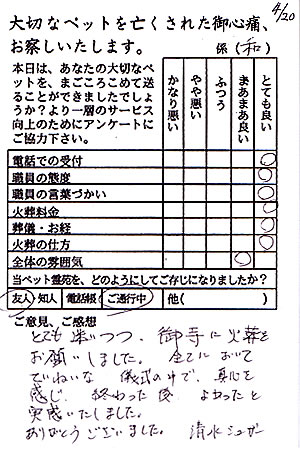 4/20
大切なペットを亡くされた御心痛、
お察しいたします。 係(和)
本日は、あなたの大切なペ
ットを、まごころこめて送
ることができましたでしょ
うか?より一層のサービス
向上のためにアンケートに
ご協力下さい。
かなり悪い
やや悪い
ふつう
まあまあ良い
とても良い
電話での受付
職員の態度
職員の言葉づかい
火葬料金
葬儀・お経
火葬の仕方
全体の雰囲気
当ペット霊苑を、どのようにしてご存じになりましたか?
友人 知人 電話帳 ご通行中 他( )
ご意見、ご感想
とても迷いつつ、御寺に火葬を
お願いしました。全てにおいて
ていねいな 儀式の中で、真心を
感じ、終わった後 よかったと
実感いたしました。
ありがとうございました。 清水シュガー